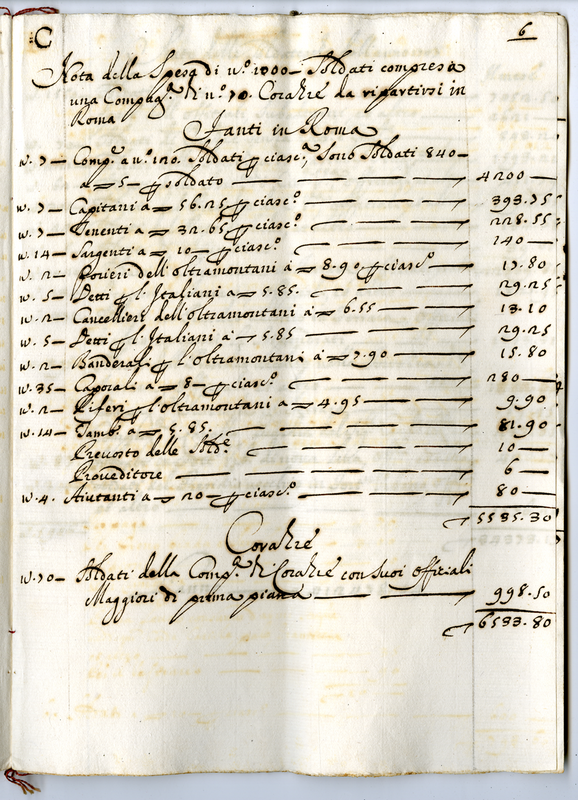 C
6
Nota della Spesa di n.º 1000 – Soldati compresa
una Compag.ª di n.º 70. Corazze da ripartirsi in
Roma
Fanti in Roma
n. 7 – Comp.e a n.º 120. Soldati p ciasc.ª, Sono Soldati 840 –
a – 5 – p soldato — 4200 —
n. 7 – Capitani a – 56.25 p ciasc.º — 393.75
n. 7 – Tenenti a – 32.65 p ciasc.º — 228.55
n. 14 – Sargenti a – 10 – p ciasc.º — 140 —
n. 2 – Forieri dell'oltramontani a – 8.90 p ciasc.º — 17.80
n. 5 – Detti p l'Italiani a – 5.85. — 29.25
n. 2 – Cancellieri dell'oltramontani a – 6.55 — 13.10
n. 5 – Detti p l'Italiani a – 5.85 — 29.25
n. 2 – Banderali p l'oltramontani a – 7.90 — 15.80
n. 35 – Caporali a – 8 – p ciasc.º — 280 —
n. 2 – Piferi p l'oltramontani a – 4.95 — 9.90
n. 14 – Tamb.i a – 5.85. — 81.90
Prevosto delle — 10 —
Proveditore — 6 —
n. 4. Aiutanti a – 20 – p ciasc.º — 80 —
5535.30
Corazze
n. 70 – Soldati della Comp.ª di Corazze con suoi Offitiali
Maggiori di prima piana — 998.50
6533.80